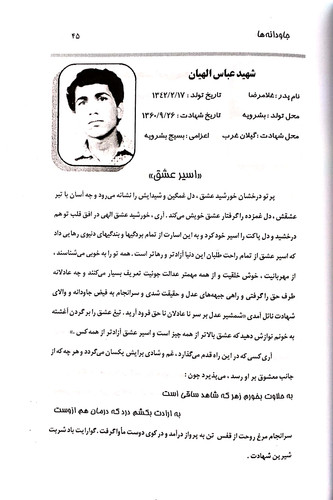 جاودانه‌ها
۴۵
شهید عباس الهیان
نام پدر : غلامرضا
تاریخ تولد : ۱۳۴۲/۲/۱۷
محل تولد : بشرویه
تاریخ شهادت : ۱۳۶۰/۹/۲۶
محل شهادت : گیلان غرب
اعزامی : بسیج بشرویه
«اسیر عشق»
پر تو درخشان خورشید عشق ، دل غمگین و شیدایش را نشانه می‌رود و چه آسان با تیر
عشقش ، دل غمزده را گرفتار عشق خویش می‌کند. آری ، خورشید عشق الهی در افق قلب تو هم
درخشید و دل پاکت را اسیر خود کرد و به این اسارت از تمام بردگیها و بندگیهای دنیوی رهایی داد
که اسیر عشق از تمام راحت طلبان این دنیا آزادتر و رهاتر است . همه تو را به خوبی می‌شناسند ،
از مهربانیت ، خوش خلقیت و از همه مهمتر عدالت جوئیت تعریف بسیار می‌کنند و چه عادلانه
طرف حق را گرفتی و راهی جبهه‌های عدل و حقیقت شدی و سرانجام به فیض جاودانه و والای
شهادت نائل آمدی «شمشیر عدل بر سر نا عدلان تا حق فرود آرید ، تیغ عشق را بر گردن آغشته
به خونم نوازش دهید که عشق بالاتر از همه چیز است و اسیر عشق آزادتر از همه کس .»
آری کسی که در این راه قدم می‌گذارد ، غم و شادی برایش یکسان می‌گردد و هر چه که از
جانب معشوق بر او رسد ، می‌پذیرد چون :
به حلاوت بخورم زهر که شاهد ساقی است
به ارادت بکشم درد که درمان هم ازوست
سرانجام مرغ روحت از قفس تن به پرواز درآمد و در کوی دوست مأوا گرفت . گوارایت باد شربت
شیرین شهادت .